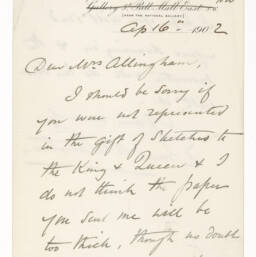 Gallery 5, Pall Mall East S.W.
[NEAR THE NATIONAL GALLERY]
Ap 16th 1902
Dear Mrs Allingham,
I should be sorry if
you were not represented
in the gift of Sketches to
the King & Queen & I
do not think the paper
you sent me will be
too thick, though no doubt